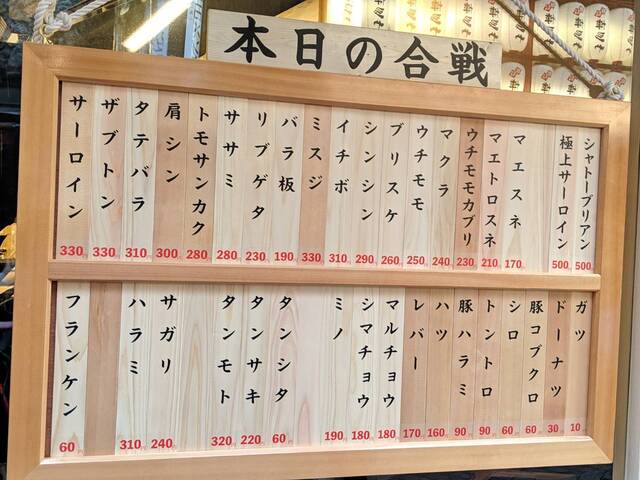 本日の合戦
シャトーブリアン 500
極上サーロイン 500
マエスネ 170
マエトロスネ 210
ウチモモカブリ 230
マクラ 240
ウチモモ 250
ブリスケ 260
シンシン 290
イチボ 310
ミスジ 330
バラ板 190
リブゲタ 230
ササミ 280
トモサンカク 280
肩シン 300
タテバラ 310
ザブトン 330
サーロイン 330
ガツ 10
ドーナツ 30
豚コブクロ 60
シロ 60
トントロ 90
豚ハラミ 90
ハツ 160
レバー 170
マルチョウ 180
シマチョウ 180
ミノ 190
タンシタ 60
タンサキ 220
タンモト 320
サガリ 240
ハラミ 310
フランケン 60